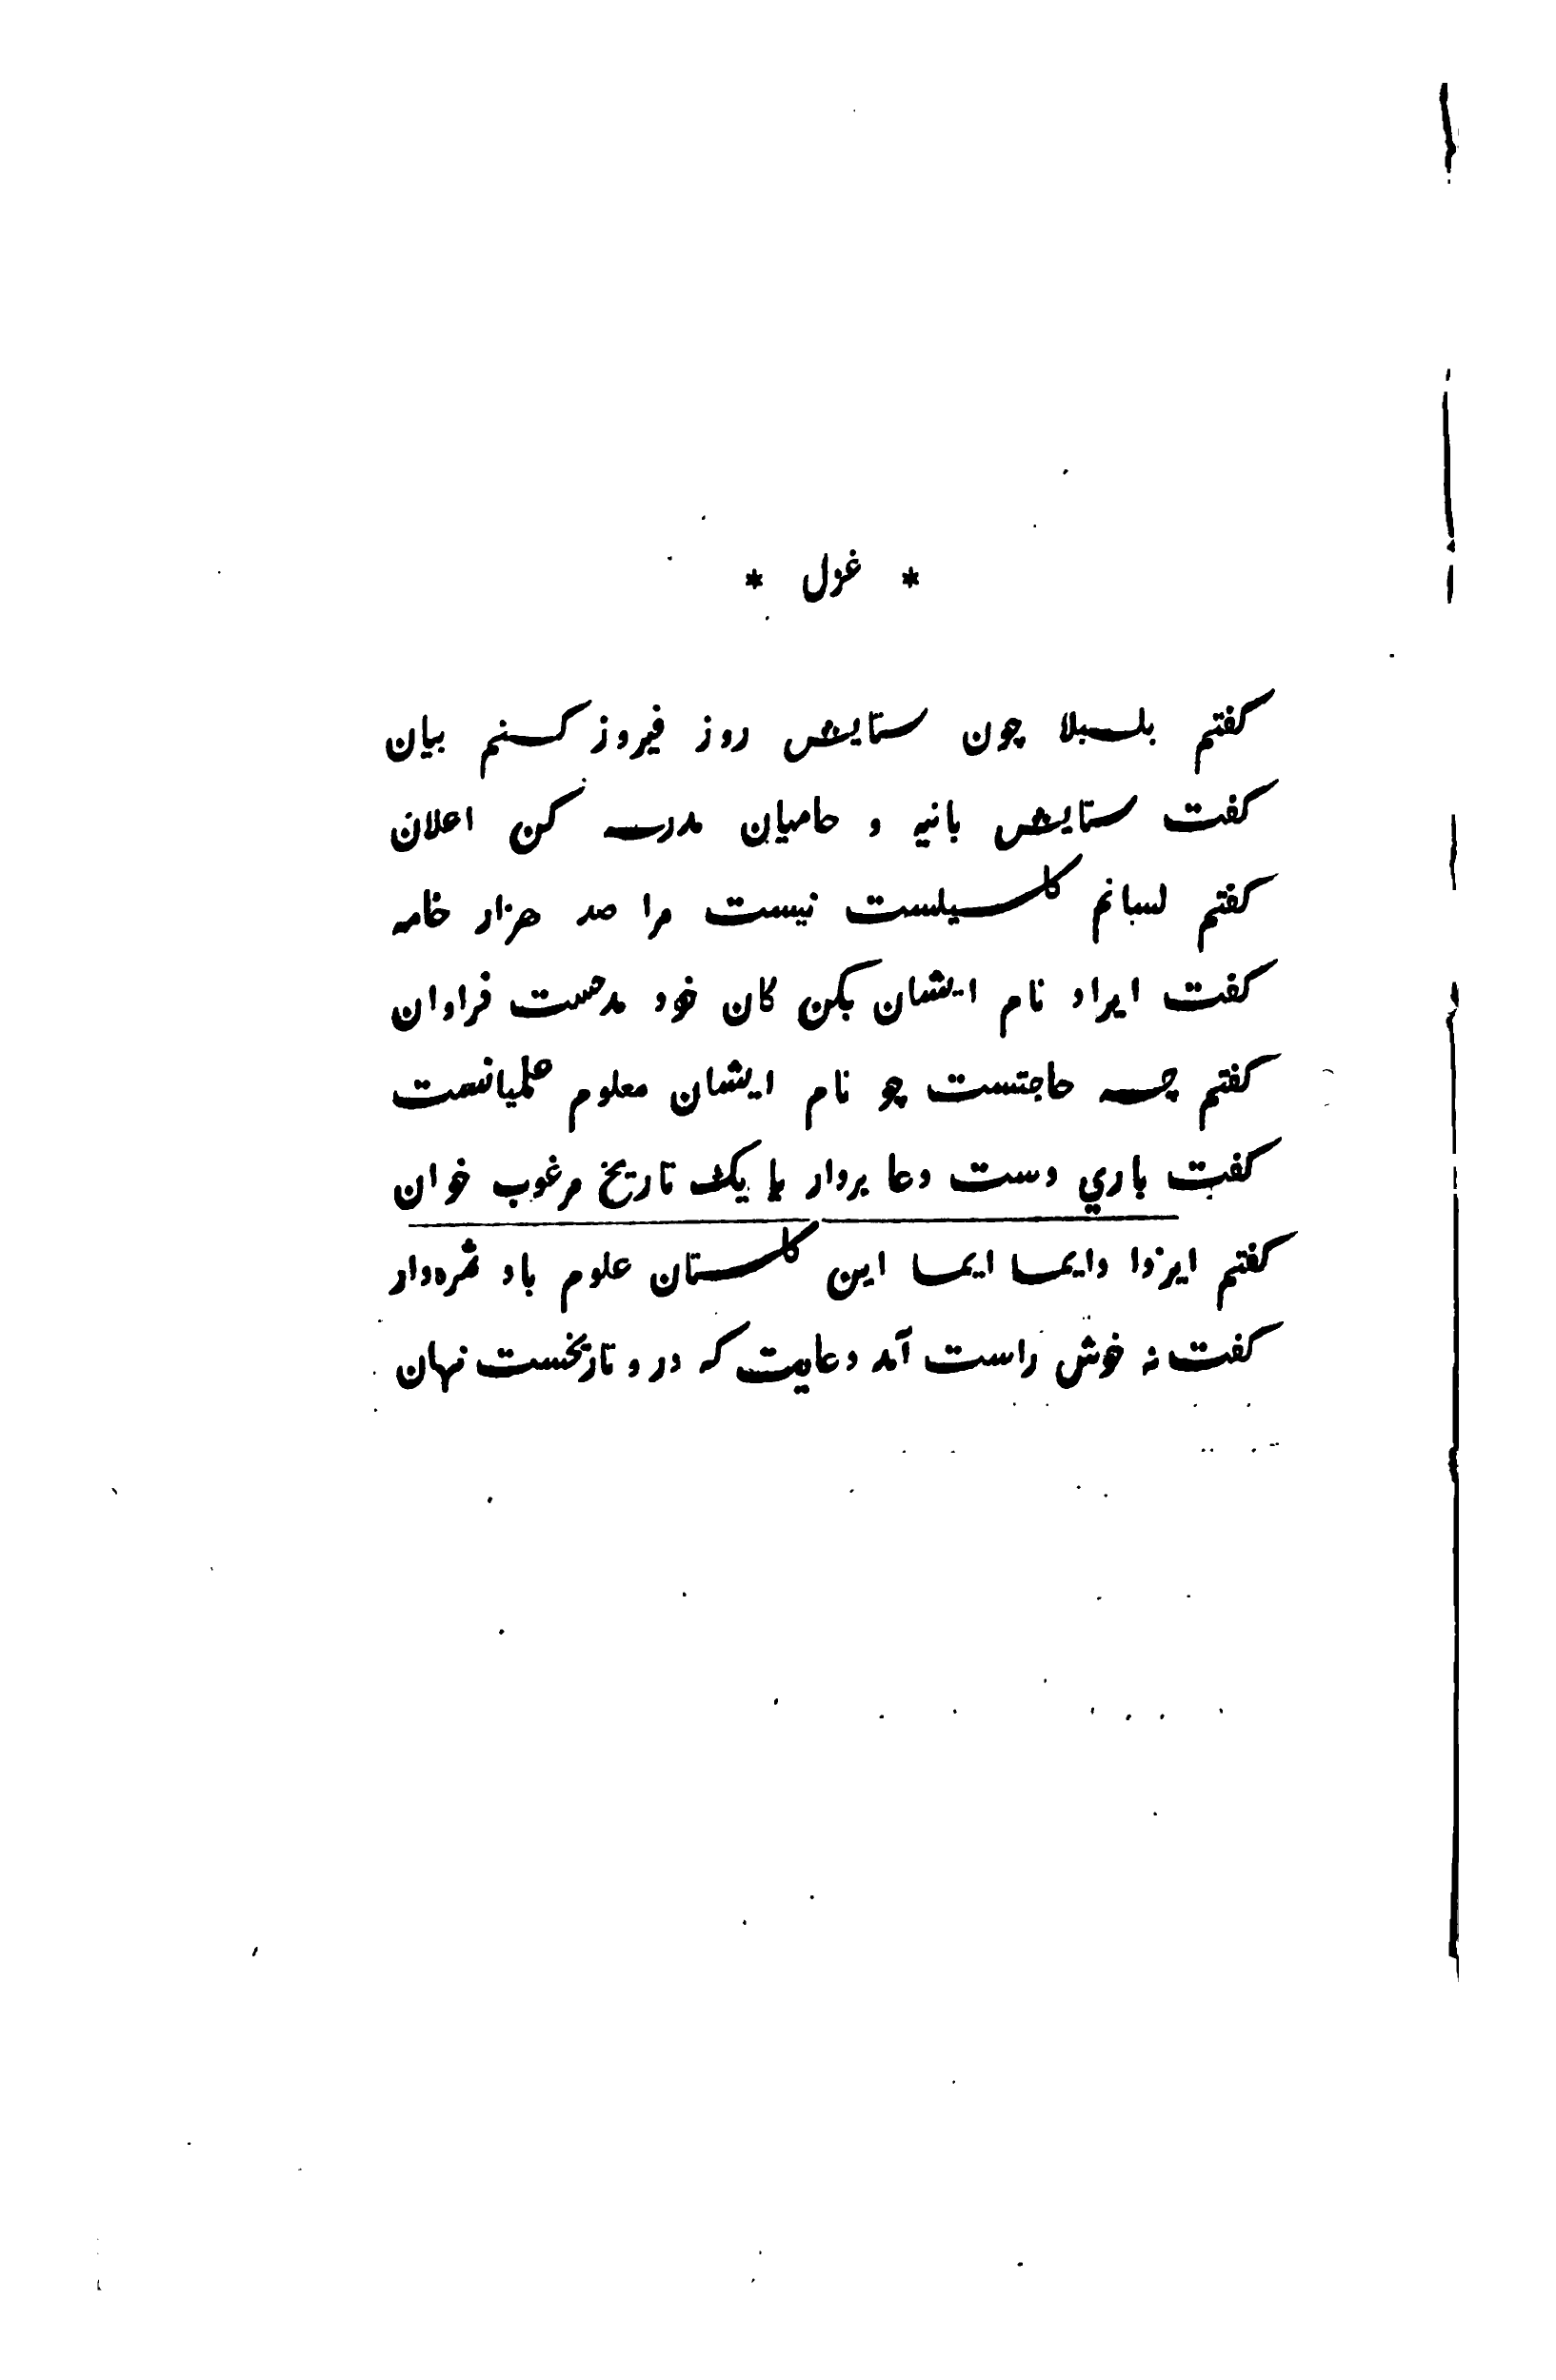 * غزل *
گفتم بلبلا چون ستایش روز فیروز کنم بیان
گفت ستایش بانیه و حامیان مدرسه کن اعلان
گفتم لسبانم کلسیلست نیست مرا صد هزار خامه
گفت ایراد نام ایشان بکن کان خود مدحست فراوان
گفتم چه حاجتست چو نام ایشان معلوم علمیانست
گفت باري دست دعا بردار با یک تاریخ مرغوب خوان
گفتم ایزدا دایما این گلستان علوم باد ثمره‌دار
گفت نه خوش راست آمد دعایت که درو تاریخست نهان